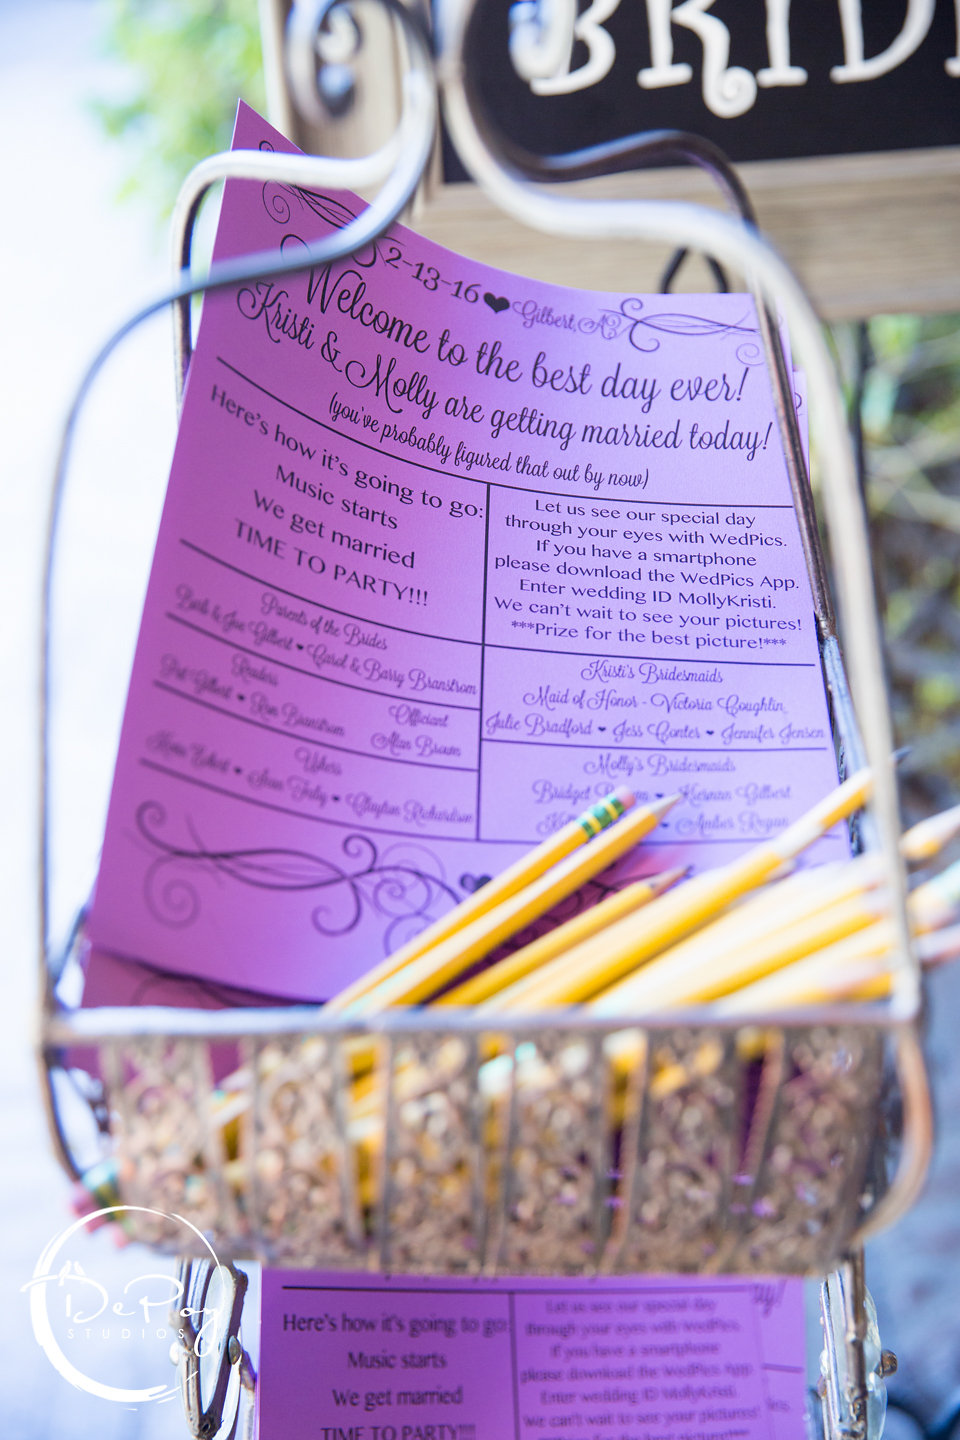 BRID
2-13-16 ♥ Gilbert, AZ
Welcome to the best day ever!
Kristi & Molly are getting married today!
(you've probably figured that out by now)
Here's how it's going to go:
Music starts
We get married
TIME TO PARTY!!!
Parents of the Brides
Barb & Joe Gilbert ♥ Carol & Barry Branstrom
Readers
Gilbert ♥ Ron Branstrom
Officiant
Alan Brown
Ushers
♥ Clayton Richardson
Let us see our special day
through your eyes with WedPics.
If you have a smartphone
please download the WedPics App.
Enter wedding ID MollyKristi.
We can't wait to see your pictures!
***Prize for the best picture!***
Kristi's Bridesmaids
Maid of Honor - Victoria Coughlin
Julie Bradford ♥ Jess Conter ♥ Jennifer Jensen
Molly's Bridesmaids
Bridget ♥ Kiernan Gilbert
♥ Amber Rogan
Here's how it's going to go:
Music starts
We get married
TIME TO PARTY!!!
Let us see our special day
through your eyes with WedPics.
If you have a smartphone
please download the WedPics App
Enter wedding ID MollyKristi.
We can't wait to see your pictures!
DePoy
STUDIOS